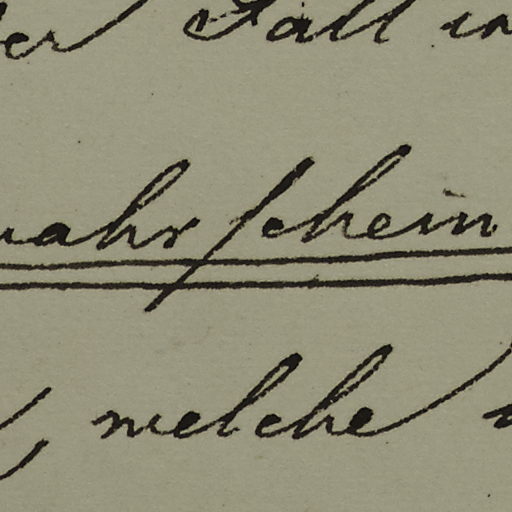 er Fall in
wahrschein
, welche